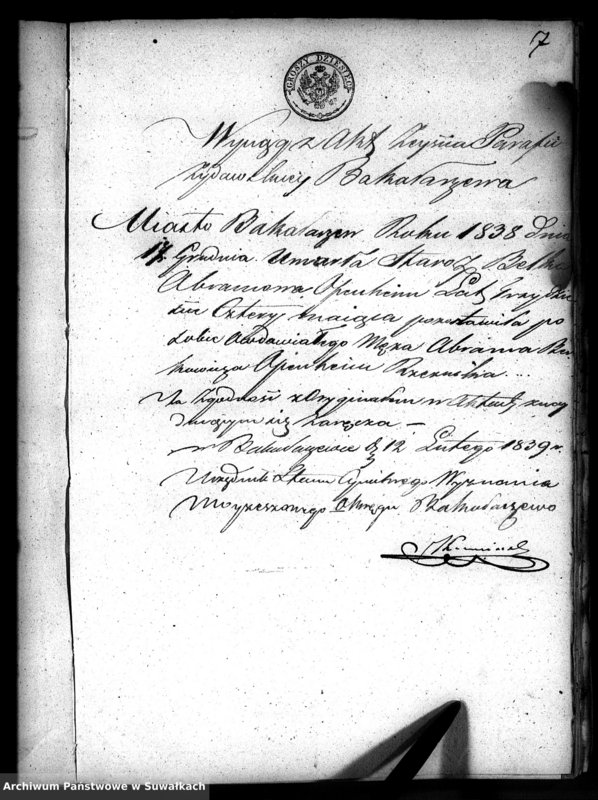 7
GROSZY DZIESIĘĆ
Wyciąg z Akt Zeyścia Parafii
Żydowskiey Bakałarzewa
Miasto Bakałarzew Roku 1838 dnia
Grudnia Umarła Staroz Beilka
Abramowa Openheim Lat trzydzie
ści Cztery maiąca pozostawiła po
sobie Owdowiałego Męża Abrama
Openheim Rzeznika
Za zgodność z Oryginałem w Aktach znay
duiącym się zaręcza —
w Bakałarzewie d 12 Lutego 1839 r.
Urzędnik Stanu Cywilnego Wyznania
Moyżeszowego Okręgu Bakałarzewo
Archiwum Państwowe w Suwałkach